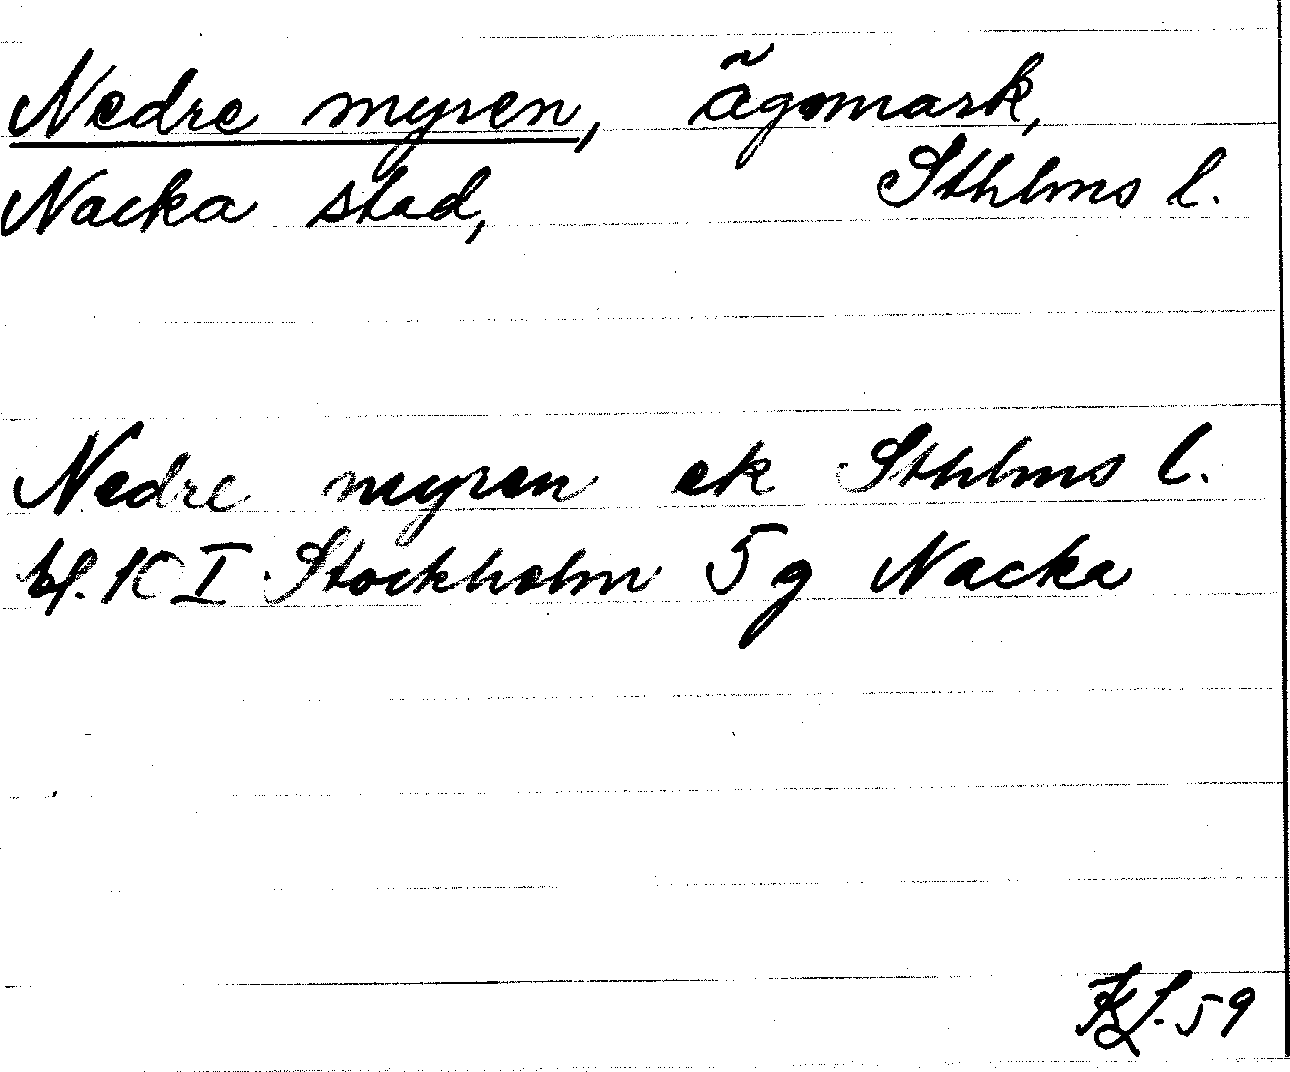 Nedre myren, ägomark,
Nacka stad, Sthlms l.
Nedre myren ek Sthlms l.
bl. 10 I Stockholm 5 g Nacka
59